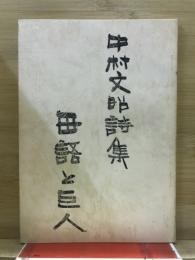 中村文昭詩集
母語と巨人